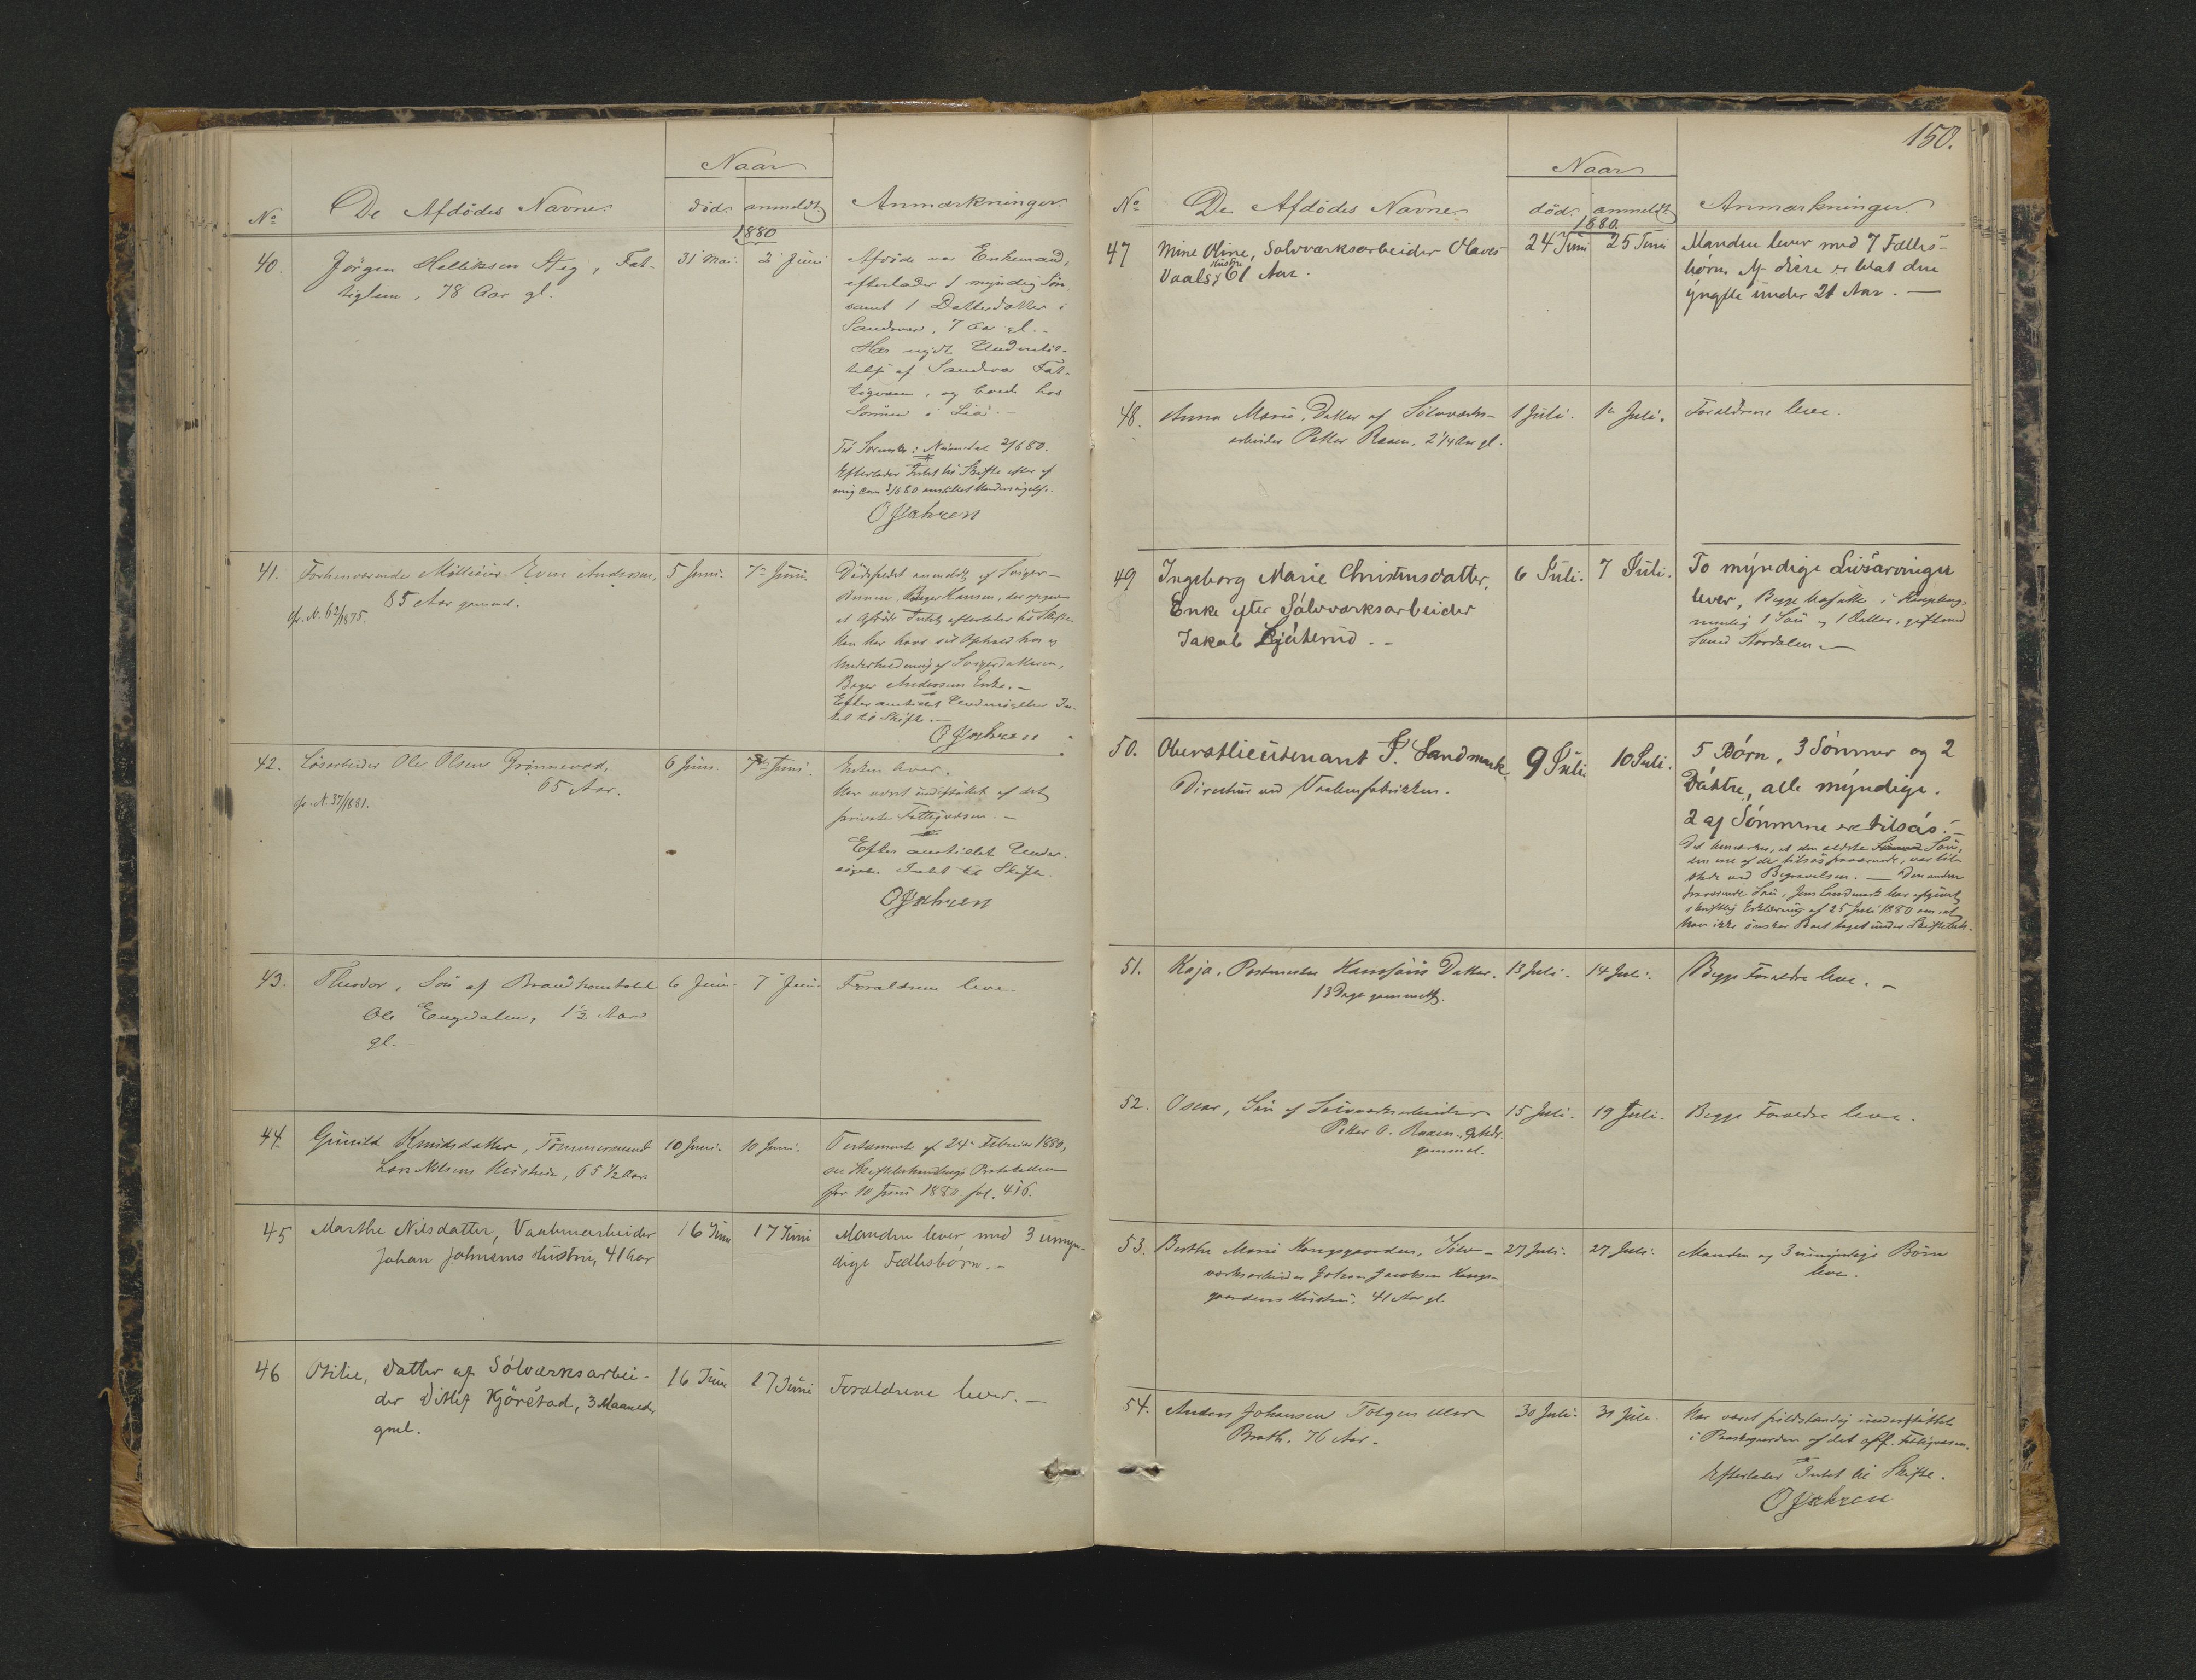 Naar
No
De Afdödes Navne.
död. anmeldt.
Anmærkninger.
1880
40. Jörgen Helliksen Steg, Fat-
tiglem, 78 Aar gl.
31 Mai. 2 Juni
Afdöde var Enkemand,
efterlader 1 myndig Sön
samt 1 Datterdatter i
Sandsvær, 7 Aar gl.
Har nydt Understöt-
telse af Sandsvær Fat-
tigvæsen, og boede hos
Sönnen i
Efterlader Intet til Skifte efter af
mig anstillet Undersögelse.
41. Forhenværende Even Andersen,
85 Aar gammel.
cfr. N. 62/1875.
5 Juni. 7 Juni.
Dödsfaldet anmeldt af Sviger-
sönnen, Hansen, der opgav
at Afdöde Intet efterlader til Skifte.
Han har havt sit Ophold hos og
Underholdning af Svigerdatteren,
Bager Andersens Enke.
Efter anstillet Undersögelse In-
tet til Skifte.
42. Lösarbeider Ole Olsen Grönnevod,
65 Aar.
cfr. N. 37/1881.
6 Juni. 7 Juni.
Enken lever.
Har været understöttet af det
private Fattigvæsen.
Efter anstillet Under-
sögelse Intet til Skifte.
43. Theodor, Sön af Brandkonstabel
Ole Engedalen, 1½ Aar
gl.
6 Juni 7 Juni
Forældrene leve
44. Gunild Knudsdatter, Tömmermand
Lars Nilsens Hustru, 65 ½ Aar
10 Juni. 10 Juni.
Testamente af 24 Februar 1880,
se Skiftebehandlings Protokollen
for 10 Juni 1880. fol. 416.
45 Marthe Nilsdatter, Vaabenarbeider
Johan Johnsens Hustru, 41 Aar
16 Juni 17 Juni
Manden lever med 3 umyn-
dige Fællesbörn.
46 Otilie, Datter af Sölvværksarbei-
der Ditlef Kjörstad, 3 Maaneder
gml.
16 Juni 17 Juni
Forældrene lever.
150.
Naar
No
De Afdödes Navne
död. anmeldt
Anmærkninger.
1880.
47 Mine Oline, Solvværksarbeider Olaves
Vaals Hustru 61 Aar.
24 Juni 25 Juni
Manden lever med 7 Fælles-
börn. Af disse er blot den
yngste under 21 Aar.
48. Anna Marie, Datter af Sölvværks-
arbeider Petter Raaen, 2 1/4 Aar gl.
1 Juli. 1 Juli.
Forældrene leve.
49 Ingeborg Marie Christensdatter,
Enke efter Sölvværksarbeider
Jakob
6 Juli. 7 Juli.
To myndige Livsarvinger
lever, Begge bosatte i Kongsberg,
nemlig 1 Sön og 1 Datter, gift med
50. Oberstlieutenant P. Landmark.
Direktör ved Vaabenfabrikken.
9 Juli 10 Juli.
5 Börn, 3 Sönner og 2
Döttre, alle myndige.
2 af Sönnerne ere tilsös.
Det bemærkes, at den ældste Sön,
den ene af de tilsös fraværende, var til-
stede ved Begravelsen. Den anden
fraværende Sön, Jens Landmark har afgivet
skriftlig Erklæring af 25 Juli 1880 om, at
han ikke önsker Boet taget under Skiftebeh.
51. Kaja, Postmester Datter.
13 Dage gammel.
13 Juli. 14 Juli.
Begge Forældre leve.
52. Oscar, Sön af Sölvværksarbeider
Petter O. Raaen, 9 Mdr.
gammel.
15 Juli. 19 Juli.
Begge Forældre leve.
53. Berthe Marie Kongsgaarden, Sölv-
værksarbeider Johan Jacobsen Kongs-
gaardens Hustru, 41 Aar gl
27 Juli. 27 Juli.
Manden og 3 umyndige Börn
leve.
54. Anders Johansen Tolgen eller
Brath. 76 Aar.
30 Juli. 31 Juli.
Har været fuldstændig understöttet
i af det off. Fattigvæsen.
Efterlader Intet til Skifte.